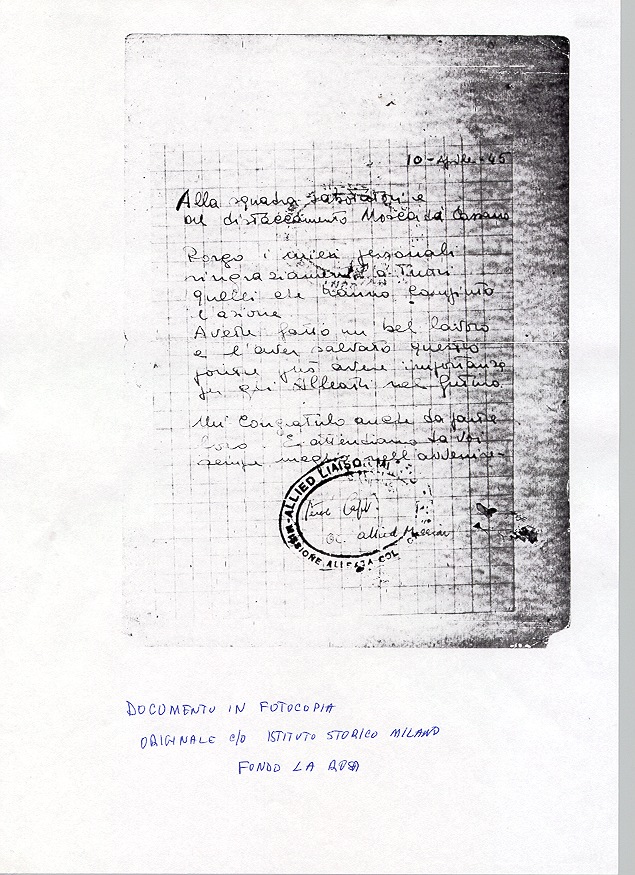 10-Aprile-45
Alla squadra Sabotatori e
del distaccamento Mosca da Cassano
Porgo i miei personali
ringraziamenti a Tutti
quelli che hanno compiuto
l'azione
Avete fatto un bel lavoro
e l'aver salvato questo
ponte può avere importanza
per gli Alleati nel futuro.
Mi congratulo anche da parte
loro. E attendiamo da voi
sempre meglio nell'avvenire
ALLIED LIAISO MI
Capt.
Allied Mission
SIONE ALLEATA COL
DOCUMENTO IN FOTOCOPIA
ORIGINALE c/o ISTITUTO STORICO MILANO
FONDO LA ROSA